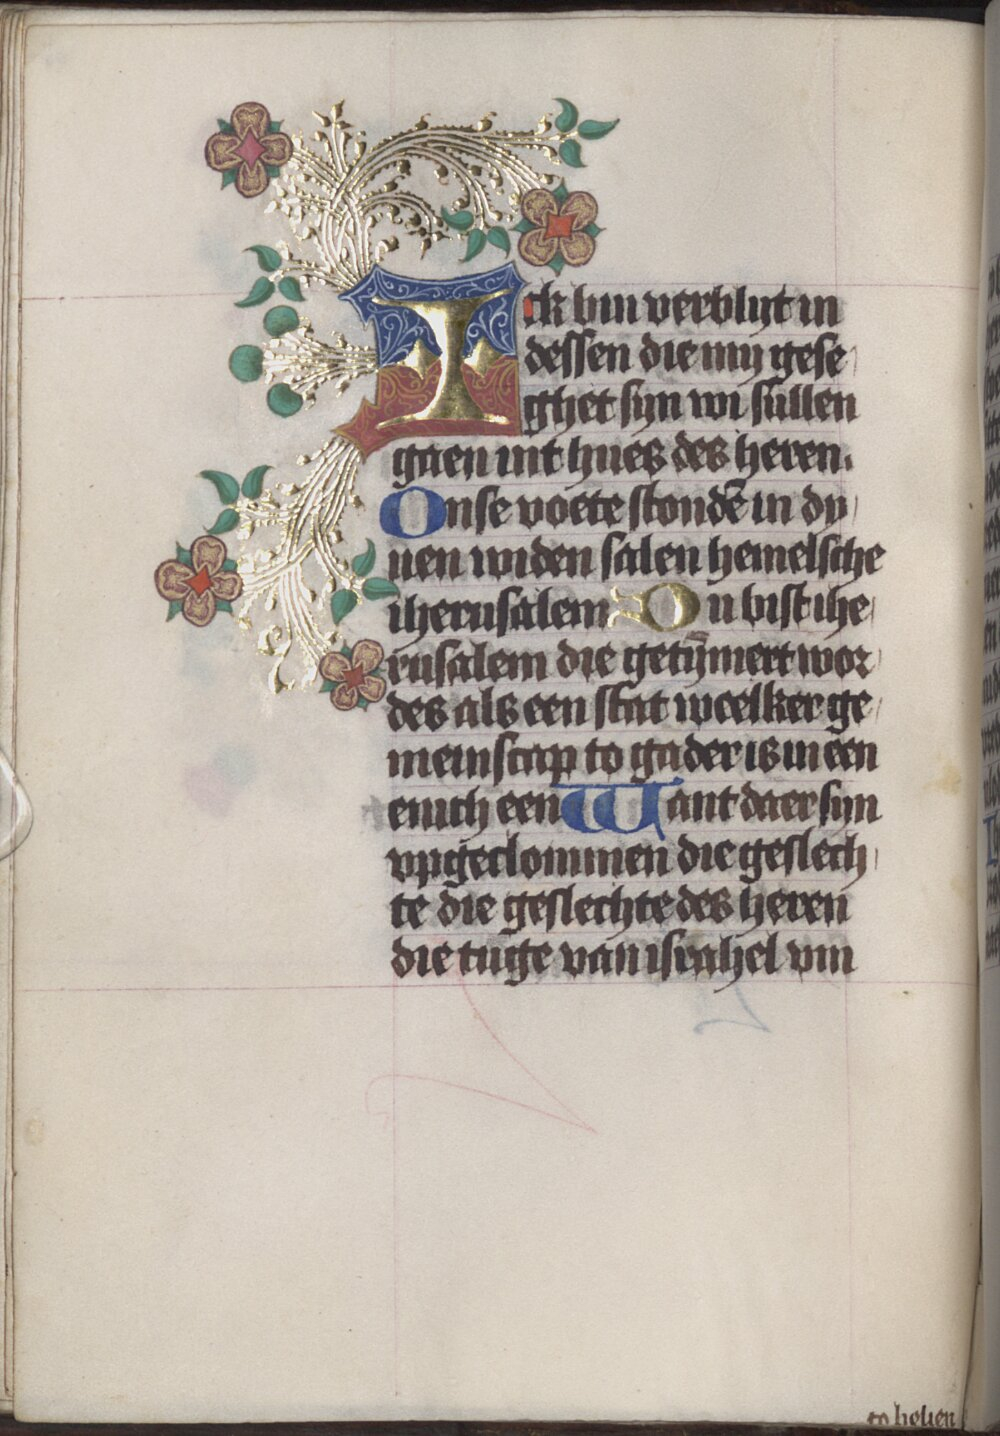 Ick bin verblijt in
dessen die mij gese
ghet sijn wi sullen
gaen int hues des heren.
Onse voete stondē in dy
nen widen salen hemelsche
iherusalem Du bist ihe
rusalem die getȳmert wor
des als een stat weelker ge
meinscap to gader is in een
enich een Want daer sijn
vpgeclommen die geslech
te die geslechte des heren
die tuge van israhel vm
to belien